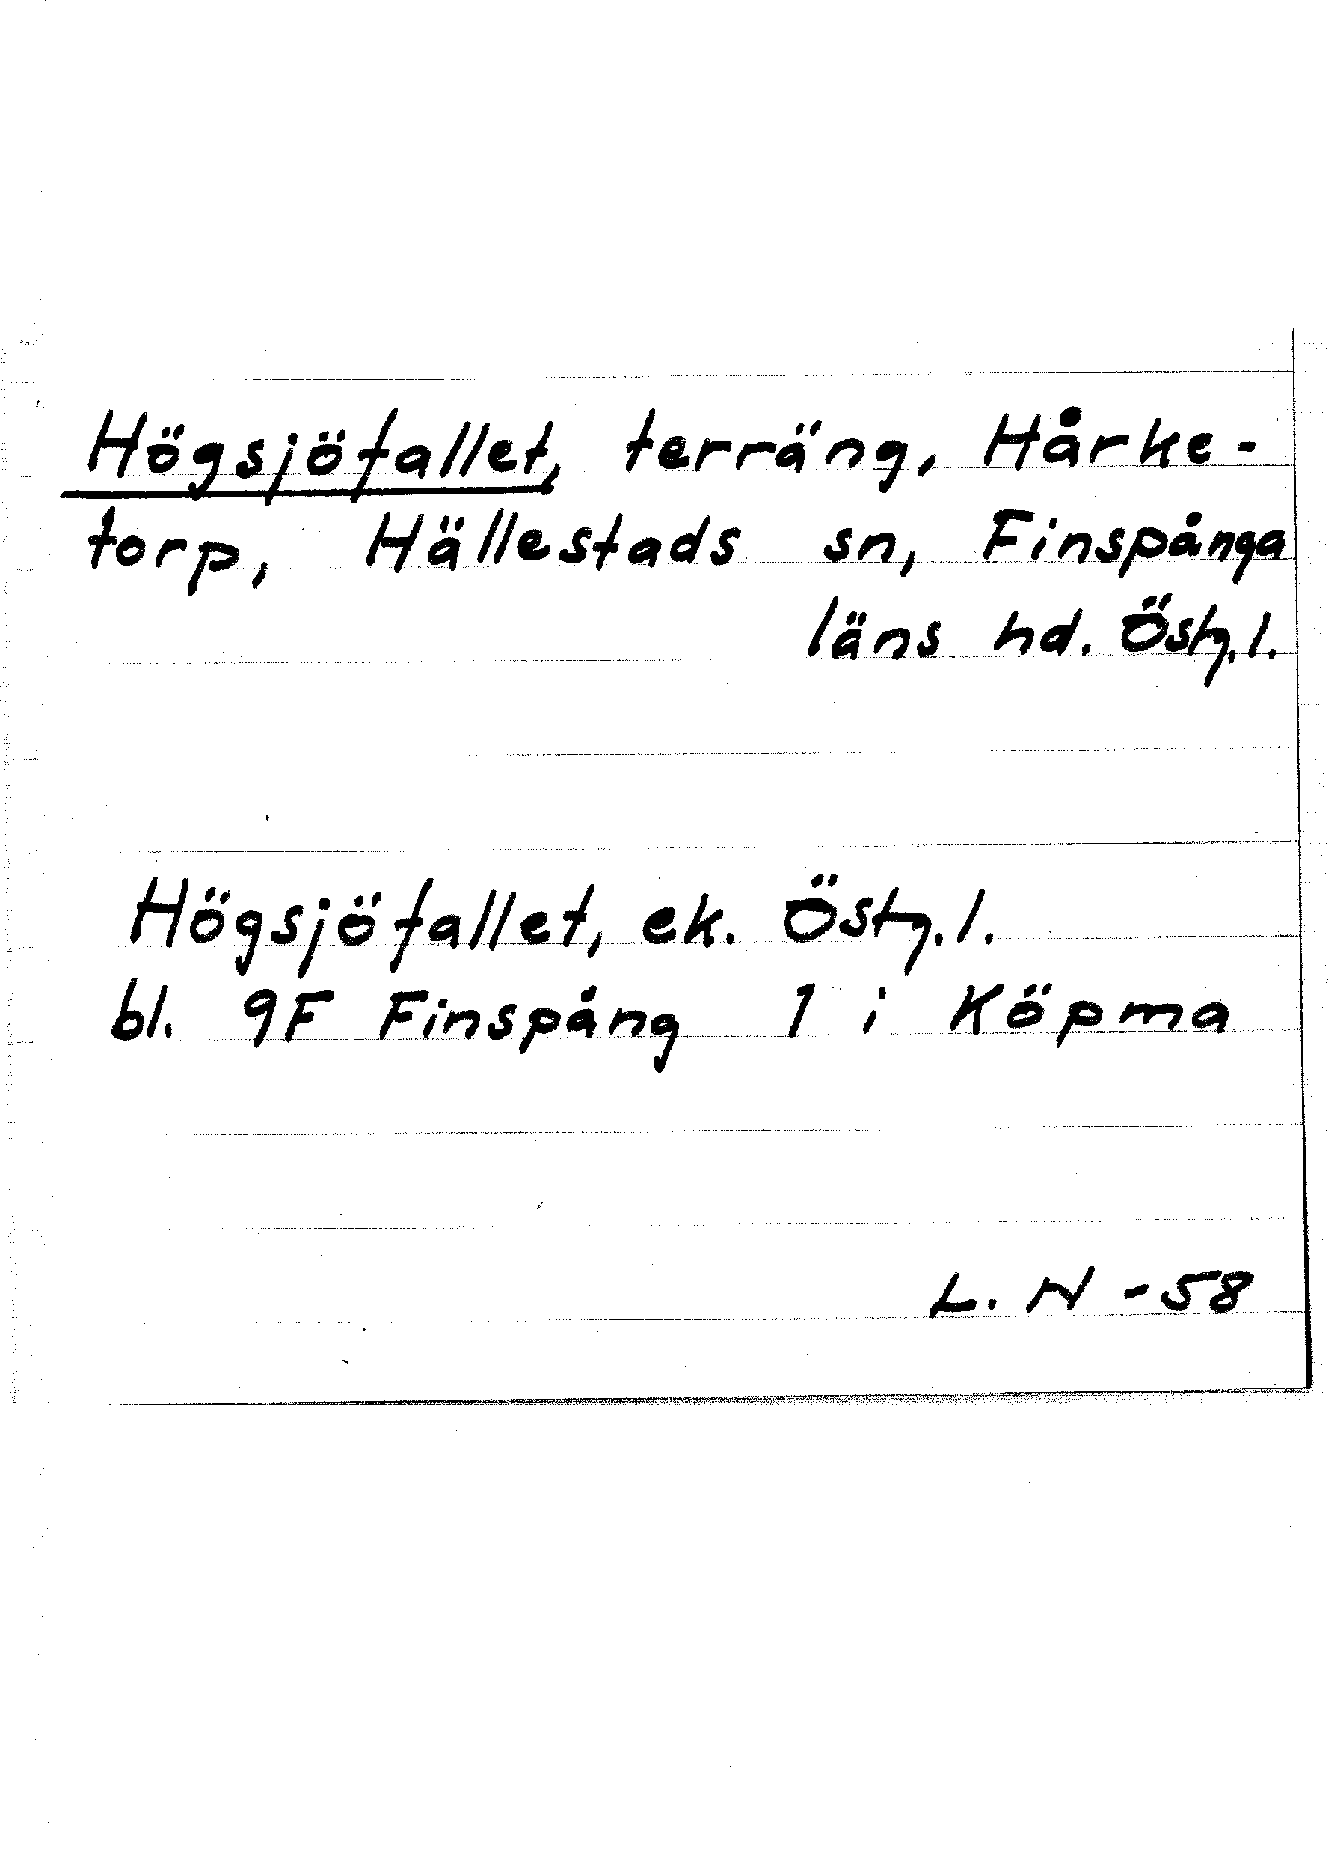 Högsjöfallet, terräng, Hårke-
torp, Hällestads sn, Finspånga
läns hd. Östg.l.
Högsjöfallet, ek. Östg.l.
bl. 9F Finspång 1 i Köpma
L. N -58